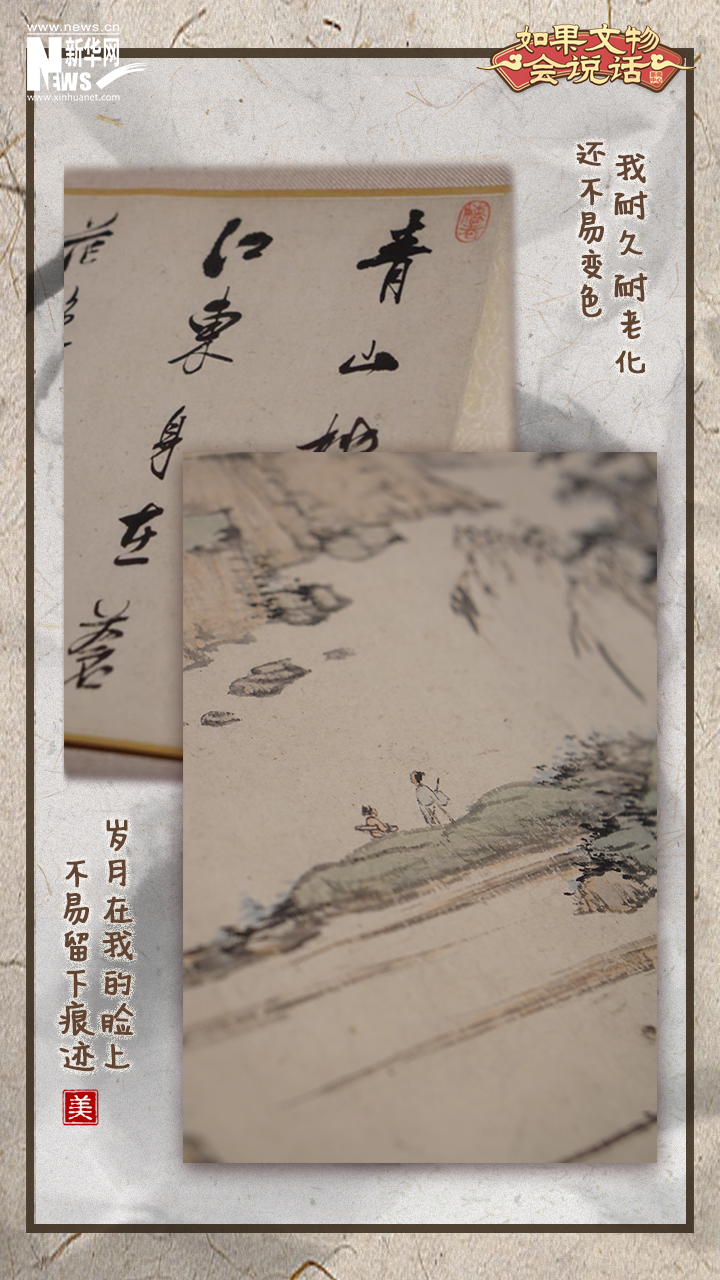 www.news.cn
新华网
NEWS
www.xinhuanet.com
如果文物
会说话
我耐久耐老化
还不易变色
青山
江东身在
岁月在我的脸上
不易留下痕迹
美